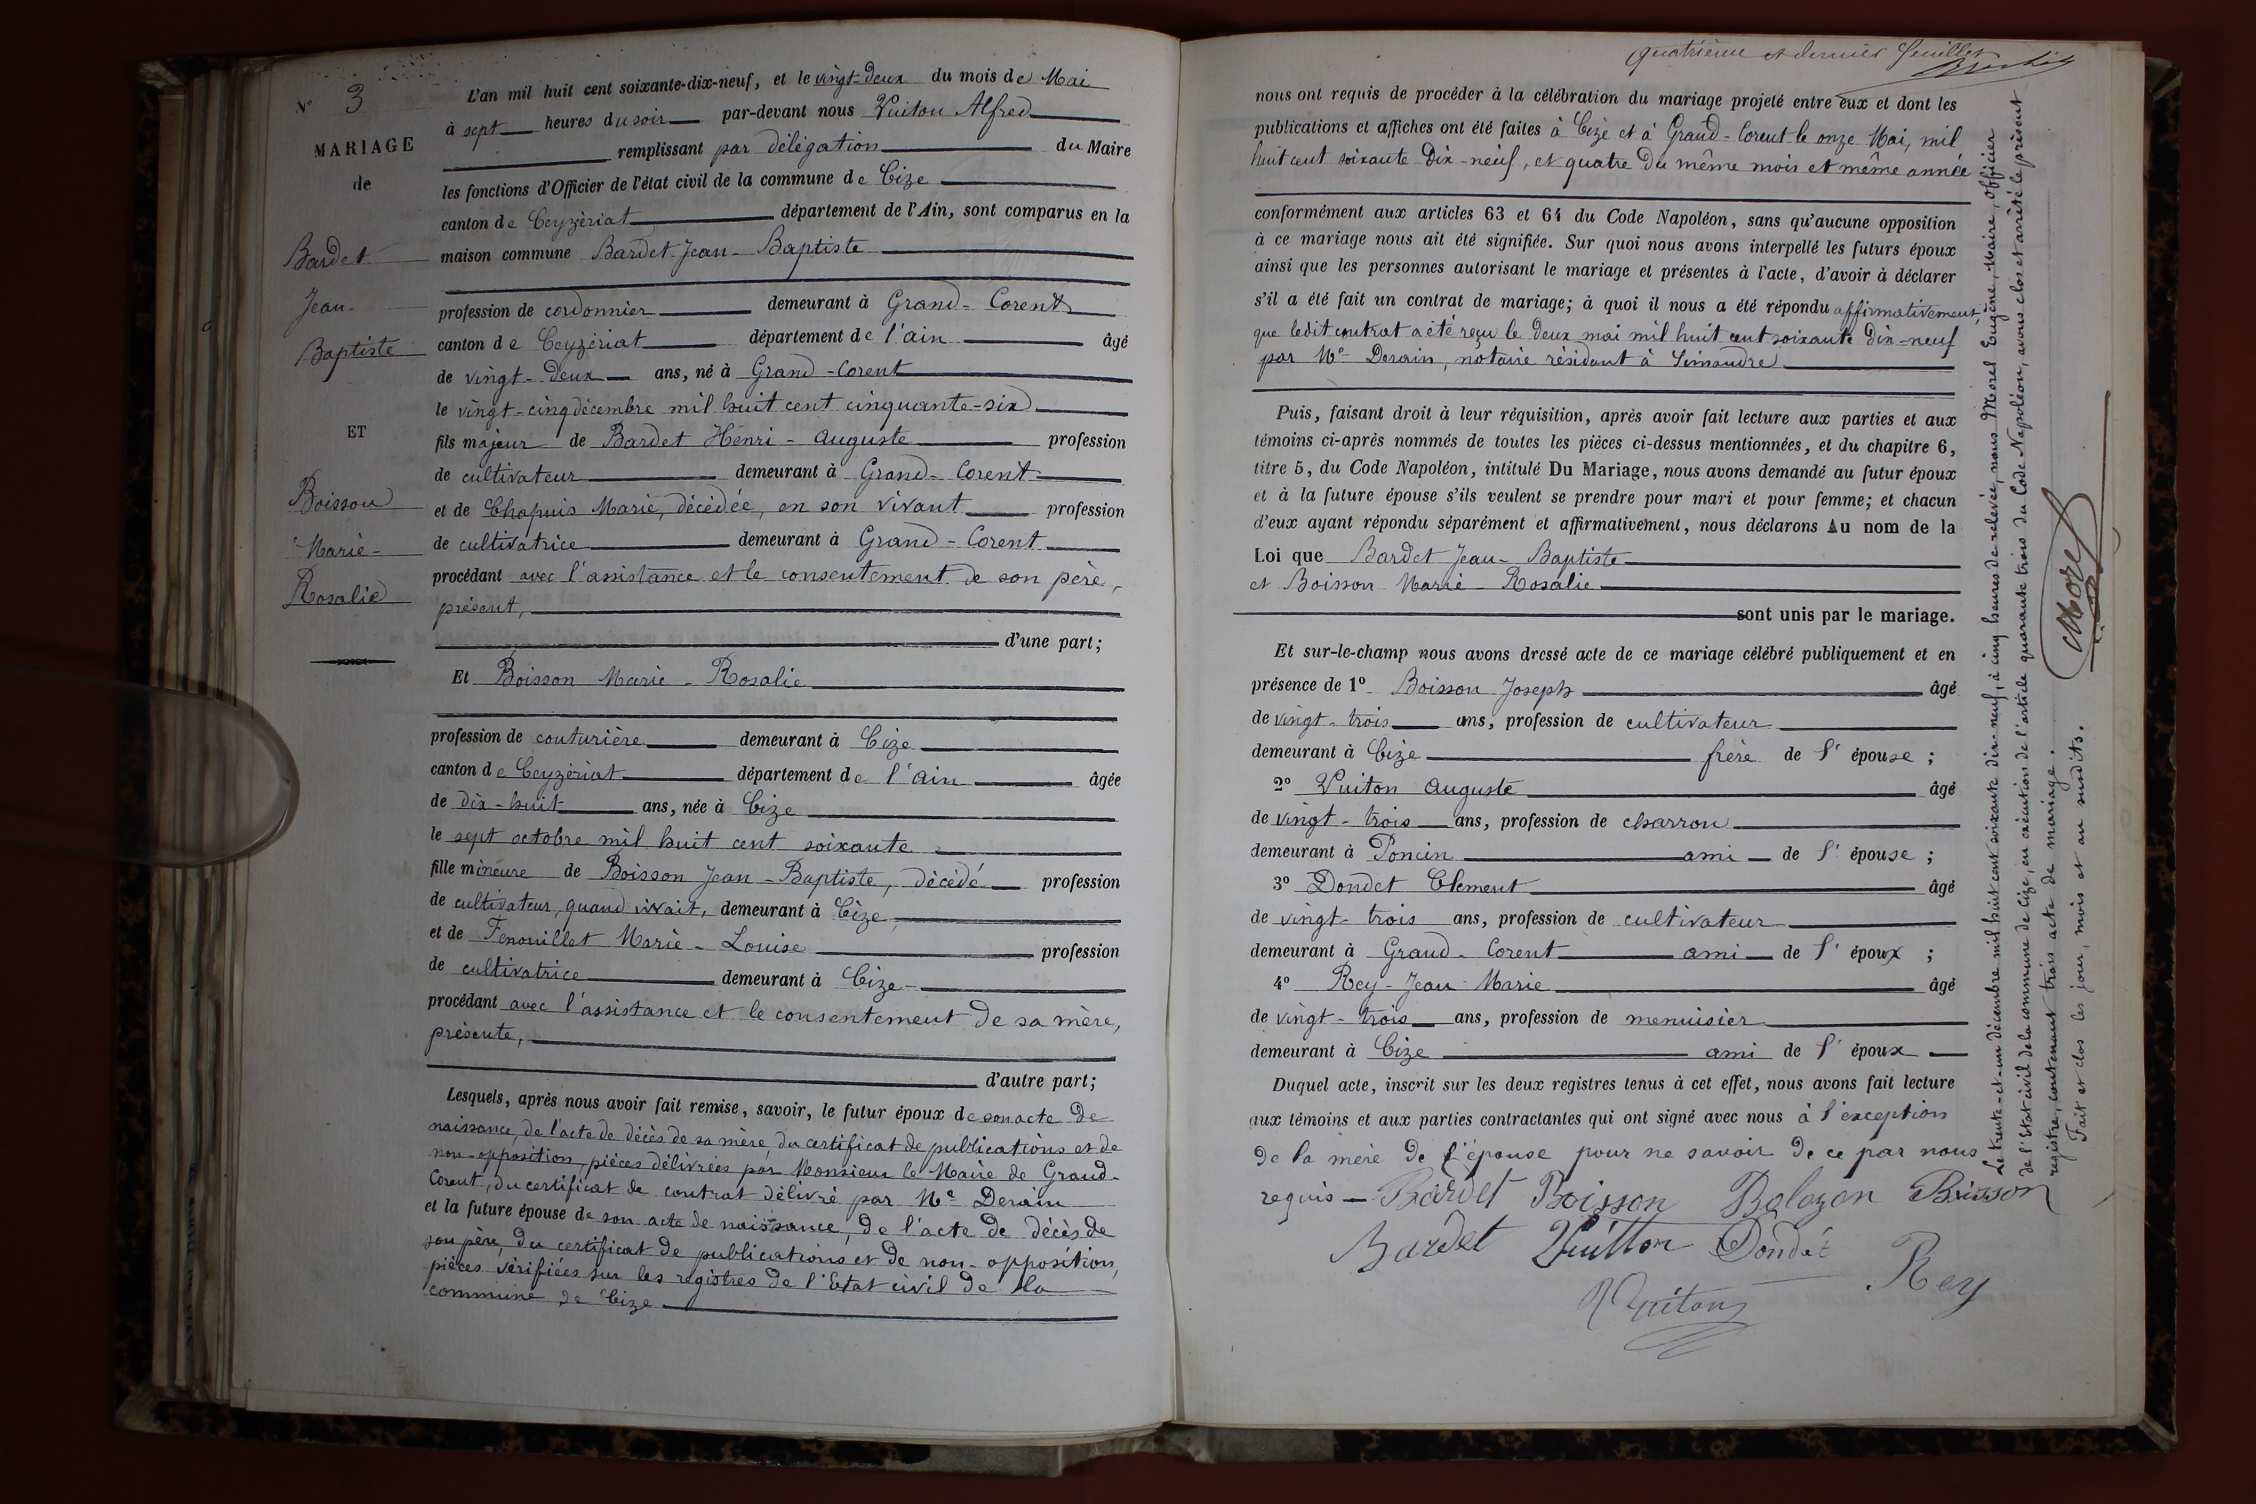 N° 3
MARIAGE
de
Bardet
Jean-
Baptiste
ET
Boisson
Marie-
Rosalie
L'an mil huit cent soixante-dix-neuf, et le vingt-deux du mois de Mai
à sept heures du soir par-devant nous Vuiton Alfred
remplissant par délégation du Maire
les fonctions d'Officier de l'état civil de la commune de Cize
canton de Ceyzériat département de l'Ain, sont comparus en la
maison commune Bardet Jean-Baptiste
profession de cordonnier demeurant à Grand-Corent
canton de Ceyzériat département de l'ain âgé
de vingt-deux ans, né à Grand-Corent
le vingt-cinq décembre mil huit cent cinquante-six
fils majeur de Bardet Henri-auguste profession
de cultivateur demeurant à Grand-Corent
et de Chapuis Marie, décédée, en son vivant profession
de cultivatrice demeurant à Grand-Corent
procédant avec l'assistance et le consentement de son père,
présent,
d'une part;
Et Boisson Marie-Rosalie
profession de couturière demeurant à Cize
canton de Ceyzériat département de l'ain âgée
de dix-huit ans, née à Cize
le sept octobre mil huit cent soixante
fille mineure de Boisson Jean-Baptiste, décédé profession
de cultivateur, quand vivait, demeurant à Cize,
et de Fenouillet Marie-Louise profession
de cultivatrice demeurant à Cize-
procédant avec l'assistance et le consentement de sa mère,
présente,
d'autre part;
Lesquels, après nous avoir fait remise, savoir, le futur époux de son acte de
naissance, de l'acte de décès de sa mère, du certificat de publications et de
non-opposition, pièces délivrées par Monsieur le Maire de Grand-
Corent, du certificat de contrat délivré par Me Derain
et la future épouse de son acte de naissance, de l'acte de décès de
son père, du certificat de publications et de non-opposition,
pièces vérifiées sur les registres de l'Etat civil de la
commune de Cize
quatrième et dernier feuillet
nous ont requis de procéder à la célébration du mariage projeté entre eux et dont les
publications et affiches ont été faites à Cize et à Grand-Corent le onze Mai, mil
huit cent soixante dix-neuf, et quatre du même mois et même année
conformément aux articles 63 et 64 du Code Napoléon, sans qu'aucune opposition
à ce mariage nous ait été signifiée. Sur quoi nous avons interpellé les futurs époux
ainsi que les personnes autorisant le mariage et présentes à l'acte, d'avoir à déclarer
s'il a été fait un contrat de mariage; à quoi il nous a été répondu affirmativement,
que ledit contrat a été reçu le deux mai mil huit cent soixante dix-neuf
par Me Derain, notaire résidant à Simandre
Puis, faisant droit à leur réquisition, après avoir fait lecture aux parties et aux
témoins ci-après nommés de toutes les pièces ci-dessus mentionnées, et du chapitre 6,
titre 5, du Code Napoléon, intitulé Du Mariage, nous avons demandé au futur époux
et à la future épouse s'ils veulent se prendre pour mari et pour femme; et chacun
d'eux ayant répondu séparément et affirmativement, nous déclarons Au nom de la
Loi que Bardet Jean-Baptiste
et Boisson Marie-Rosalie
sont unis par le mariage.
Et sur-le-champ nous avons dressé acte de ce mariage célébré publiquement et en
présence de 1° Boisson Joseph âgé
de vingt-trois ans, profession de cultivateur
demeurant à Cize frère de l' épouse;
2° Vuiton Auguste âgé
de vingt-trois ans, profession de charron
demeurant à Poncin ami de l' épouse;
3° Dondet Clement âgé
de vingt-trois ans, profession de cultivateur
demeurant à Grand-Corent ami de l' époux;
4° Rey-Jean Marie âgé
de vingt-trois ans, profession de menuisier
demeurant à Cize ami de l' époux
Duquel acte, inscrit sur les deux registres tenus à cet effet, nous avons fait lecture
aux témoins et aux parties contractantes qui ont signé avec nous à l'exception
de la mère de l'épouse pour ne savoir de ce par nous
requis Bardet Boisson Balazan Boisson
Bardet Vuitton Dondet
Rey
Vuiton
Le trente-et-un décembre mil huit cent soixante dix-neuf, à cinq heures de relevée, nous Morel Eugène, Maire, officier
de l'Etat civil de la commune de Cize, en exécution de l'article quarante trois du Code Napoléon, avons clos et arrêté le présent
registre, contenant trois acte de mariage.
Fait et clos les jour, mois et an susdits.
Morel